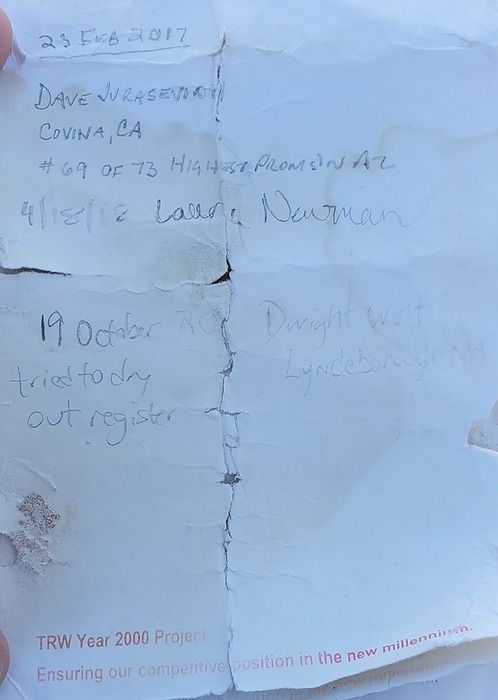 23 FEB 2017
DAVE JURASEVICH
COVINA, CA
#69 OF 73 HIGHEST PROM IN AZ
4/18/18 Newman
19 October Dwight
tried to dry Lyndeborough NH
out register
TRW Year 2000 Project
Ensuring our competitive position in the new millennium.